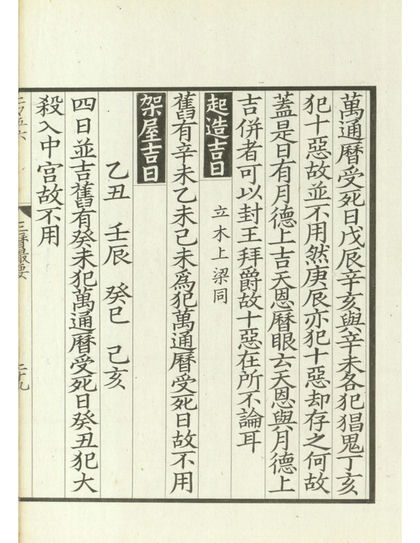 萬通曆受死日戊辰辛亥與辛未各犯猖鬼丁亥
犯十惡故並不用然庚辰亦犯十惡却存之何故
蓋是日有月德上吉天恩曆眼云天恩與月德上
吉併者可以封王拜爵故十惡在所不論耳
起造吉日
立木上梁同
舊有辛未乙未己未爲犯萬通曆受死日故不用
架屋吉日
乙丑　壬辰　癸巳　己亥
四日並吉舊有癸未犯萬通曆受死日癸丑犯大
殺入中宫故不用